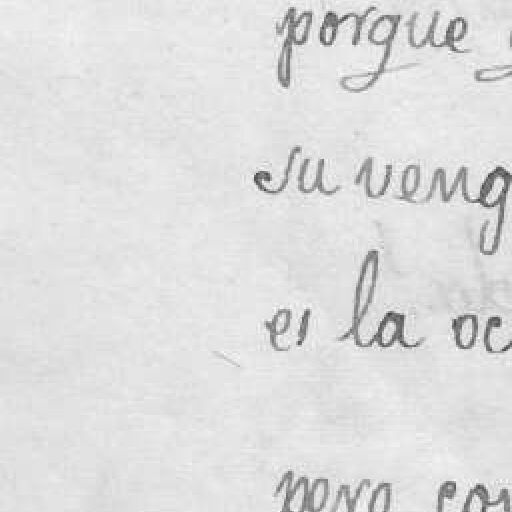 porque
su veng
es la oc
pero con